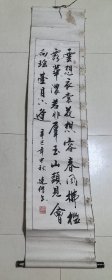 雲想衣裳花想容春風拂檻
露華濃若非群玉山頭見會
向瑶臺月下逢